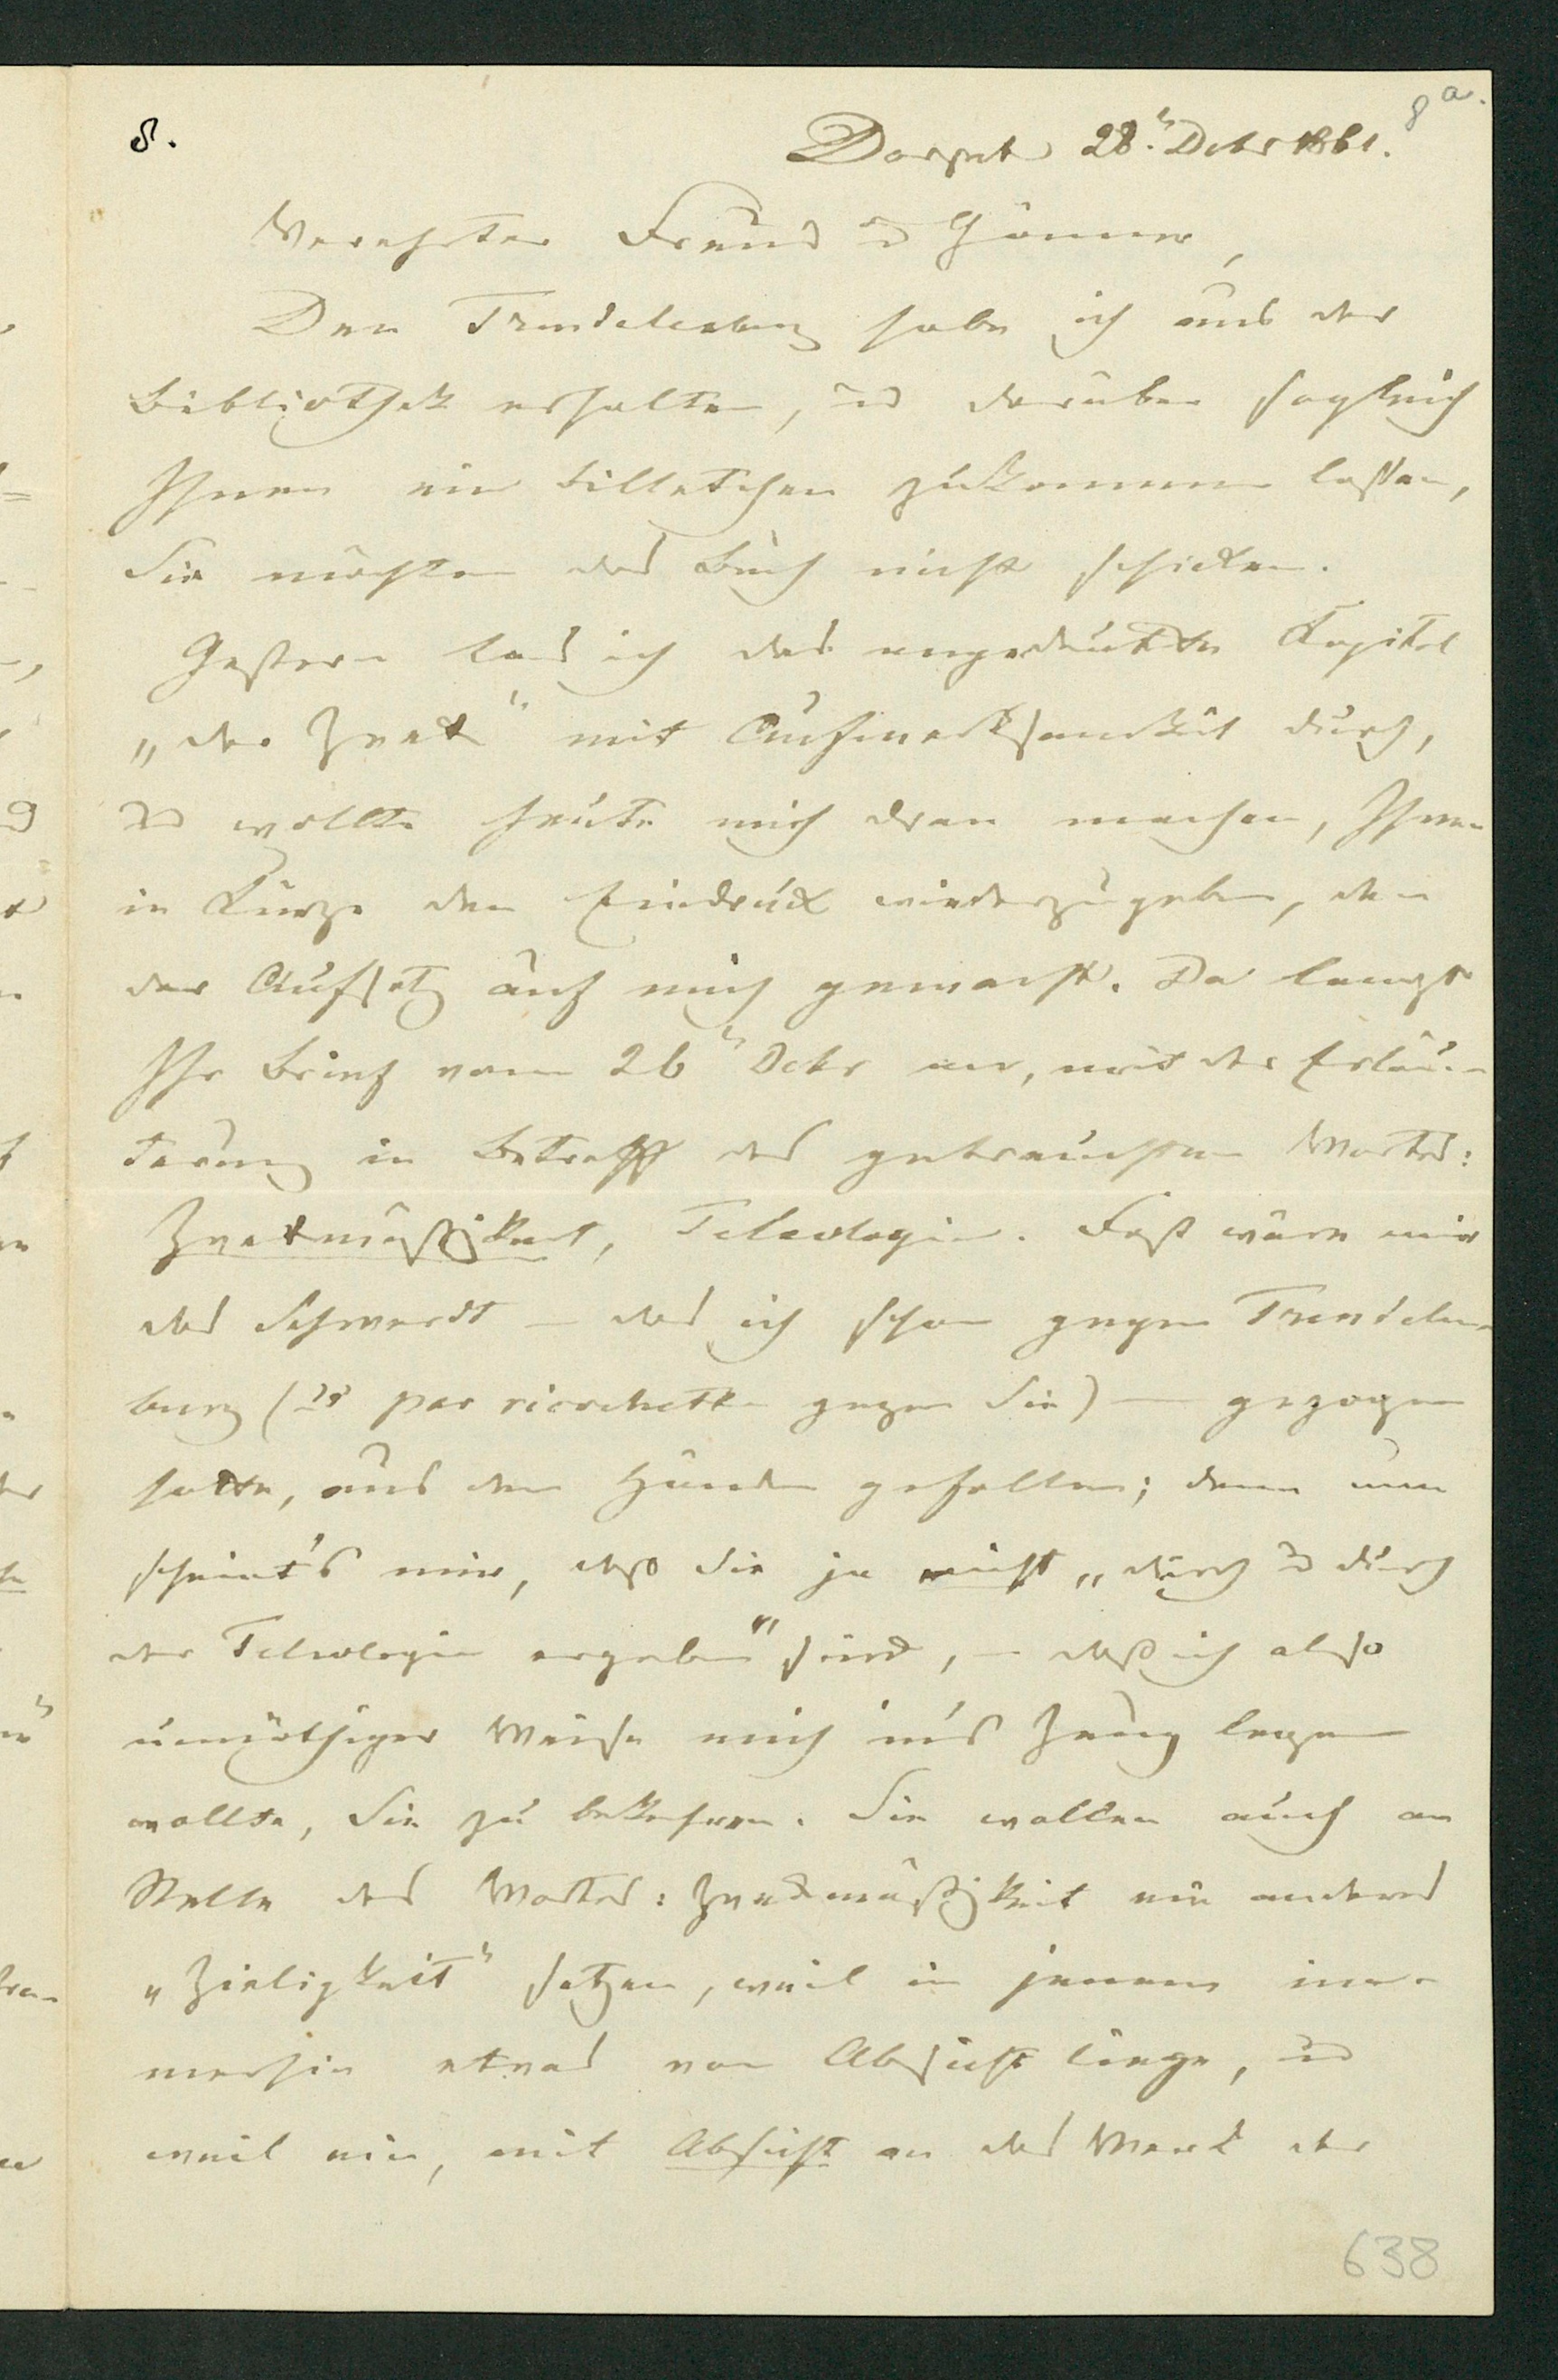 8.
8a.
Dorpat 28n. Dcbr 1861.
Verehrter Freund u Gönner,
Den Trendelenburg habe ich aus der
Bibliothek erhalten, u darüber sogleich
Ihnen ein Billetchen zukommen lassen,
Sie möchten das Buch nicht schicken.
Gestern las ich das angedeutete Kapitel
„der Zweck" mit Aufmerksamkeit durch,
u wollte heute mich dran machen, Ihnen
in Kürze den Eindruck wiederzugeben, den
der Aufsatz auf mich gemacht. Da langt
Ihr Brief vom 26n Dcbr an, mit der Erläu-
terung in Betreff des gebrauchten Wortes:
Zweckmäßigkeit, Teleologie. Fast wäre mir
das Schwerdt – das ich schon gegen Trendelen-
burg (u par ricochette gegen Sie) – gezogen
hatte, aus den Händen gefallen; denn nun
scheint's mir, daß Sie ja nicht „durch u durch
der Teleologie ergeben" sind, – daß ich also
unnöthiger Weise mich in's Zeug legen
wollte, Sie zu bekehren. Sie wollen auch an
Stelle des Wortes: Zweckmäßigkeit ein anderes
„Zieligkeit" setzen, weil in jenem im-
merhin etwas von Absicht liege, u
weil ein, mit Absicht an das Werk der
638